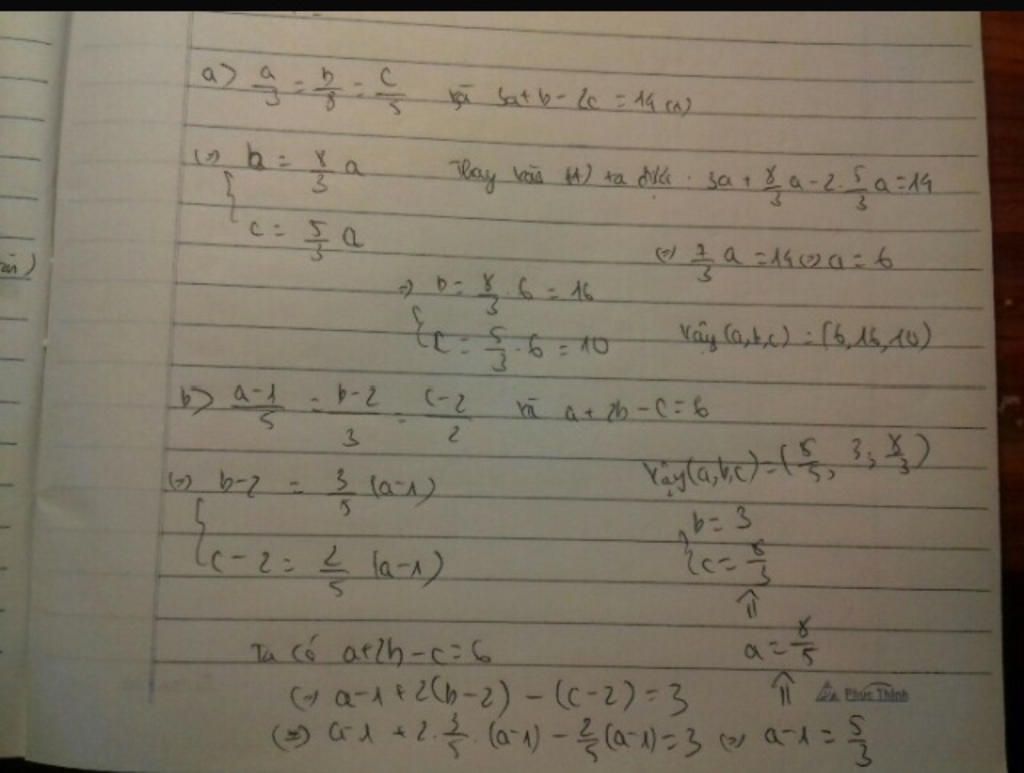 a) a/3 = b/8 = c/5 và 3a+b-2c = 14 (1)
(=) { b = 8/3 a Thay vào (1) ta được. 3a + 8/3 a - 2. 5/3 a = 14
c = 5/3 a
(=) 7/3 a = 14 (=) a = 6
=) { b = 8/3 . 6 = 16
c = 5/3 . 6 = 10 Vậy (a,b,c) = (6,16,10)
b) a-1/5 = b-2/3 = c-2/2 và a + 2b - c = 6
(=) { b-2 = 3/5 (a-1)
c-2 = 2/5 (a-1)
Vậy (a,b,c) = (8/5, 3; 8/3)
{ b = 3
c = 8/3
⇑
a = 8/5
⇑
Ta có a+2b-c = 6
(=) a-1 + 2(b-2) - (c-2) = 3
(=) a-1 + 2. 3/5 . (a-1) - 2/5 (a-1) = 3 (=) a-1 = 5/3
Phúc Thịnh